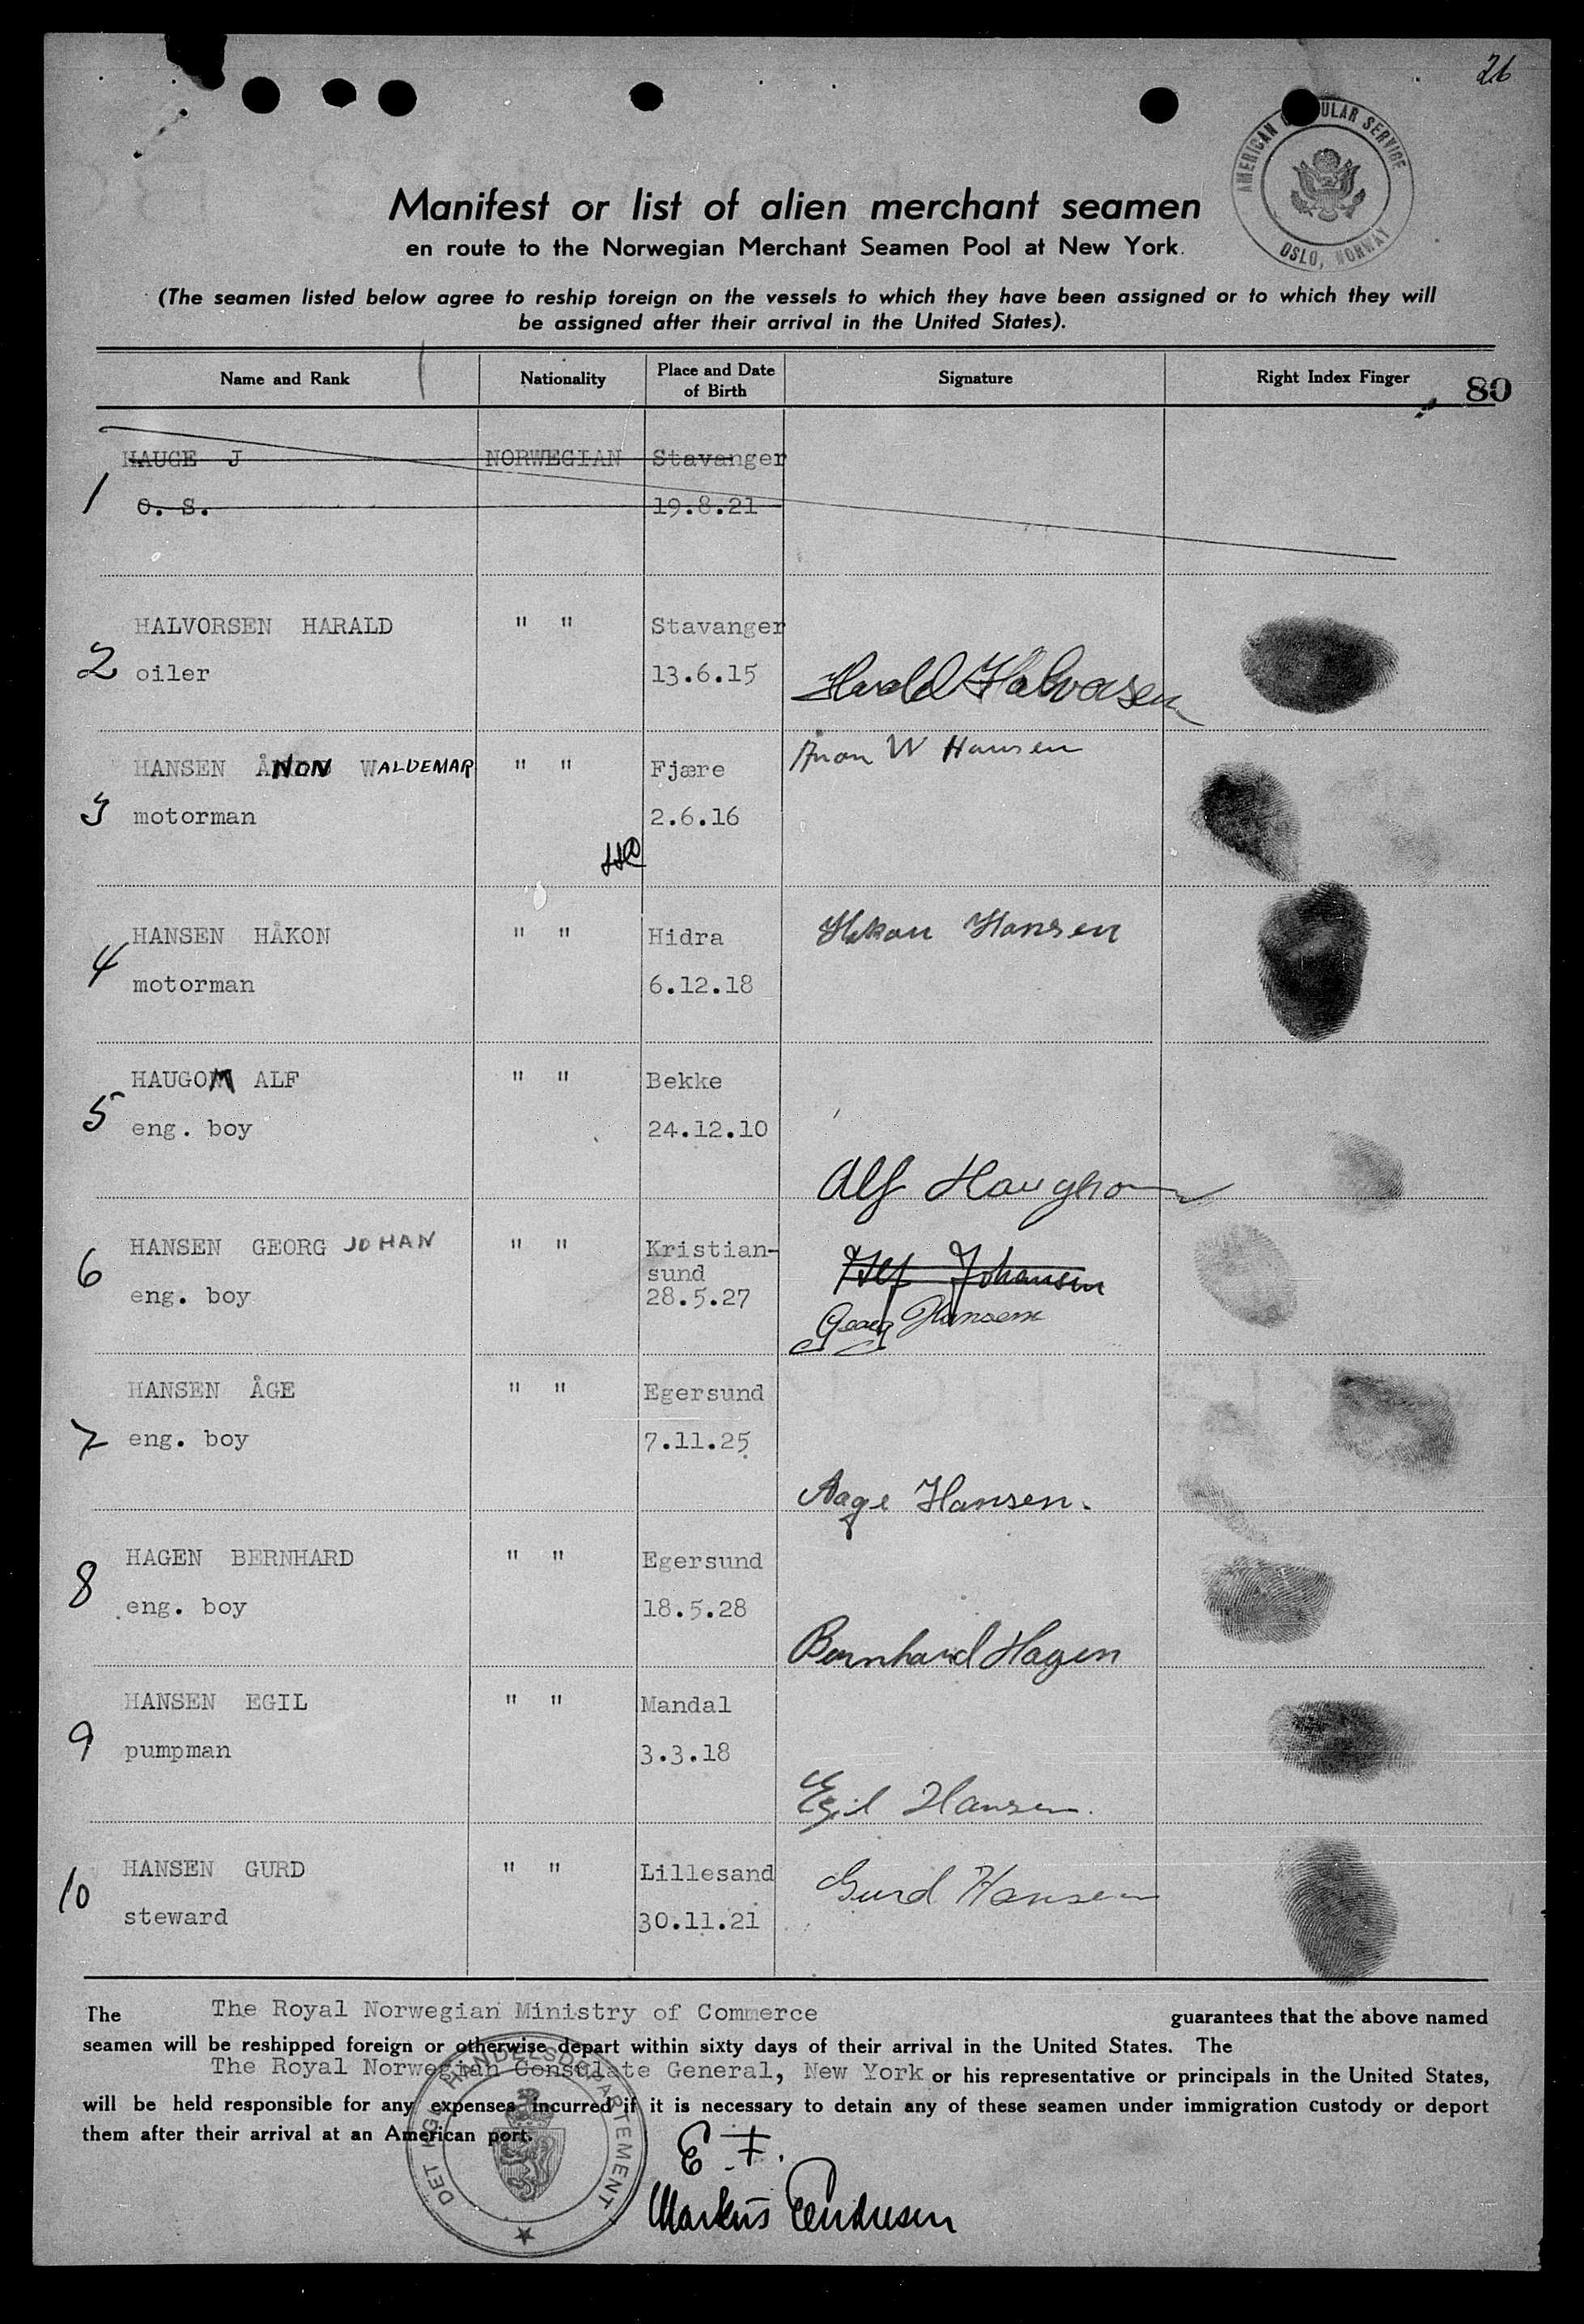 26
AMERICAN ULAR SERVICE
OSLO, NORWAY
Manifest or list of alien merchant seamen
en route to the Norwegian Merchant Seamen Pool at New York.
(The seamen listed below agree to reship foreign on the vessels to which they have been assigned or to which they will
be assigned after their arrival in the United States).
Name and Rank Nationality Place and Date of Birth Signature Right Index Finger 80
1 HAUGE J NORWEGIAN Stavanger
O. S. 19.8.21
HALVORSEN HARALD " " Stavanger
2 oiler 13.6.15 Harald Halvorsen
HANSEN ÅNON WALDEMAR " " Fjære Ånon W Hansen
3 motorman 2.6.16
HANSEN HÅKON " " Hidra Håkon Hansen
4 motorman 6.12.18
HAUGOM ALF " " Bekke
5 eng. boy 24.12.10
Alf Haughom
HANSEN GEORG JOHAN " " Kristian-
sund
6 eng. boy 28.5.27 Johansen
Georg Hansen
HANSEN ÅGE " " Egersund
7 eng. boy 7.11.25
Aage Hansen.
HAGEN BERNHARD " " Egersund
8 eng. boy 18.5.28
Bernhard Hagen
HANSEN EGIL " " Mandal
9 pumpman 3.3.18
Egil Hansen.
HANSEN GURD " " Lillesand Gurd Hansen
10 steward 30.11.21
The The Royal Norwegian Ministry of Commerce guarantees that the above named
seamen will be reshipped foreign or otherwise depart within sixty days of their arrival in the United States. The
The Royal Norwegian Consulate General, New York or his representative or principals in the United States,
will be held responsible for any expenses incurred if it is necessary to detain any of these seamen under immigration custody or deport
them after their arrival at an American port.
DET KGL. HANDELSDEPARTEMENT
E. F.
Markus Endresen